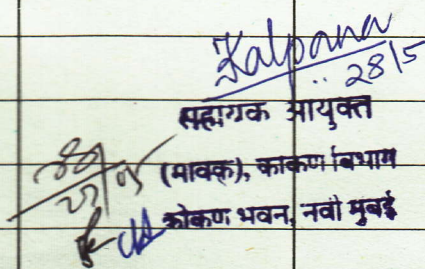 Kalpana
28/5
सहायक आयुक्त
(मावक), कोकण विभाग
कोकण भवन, नवी मुंबई